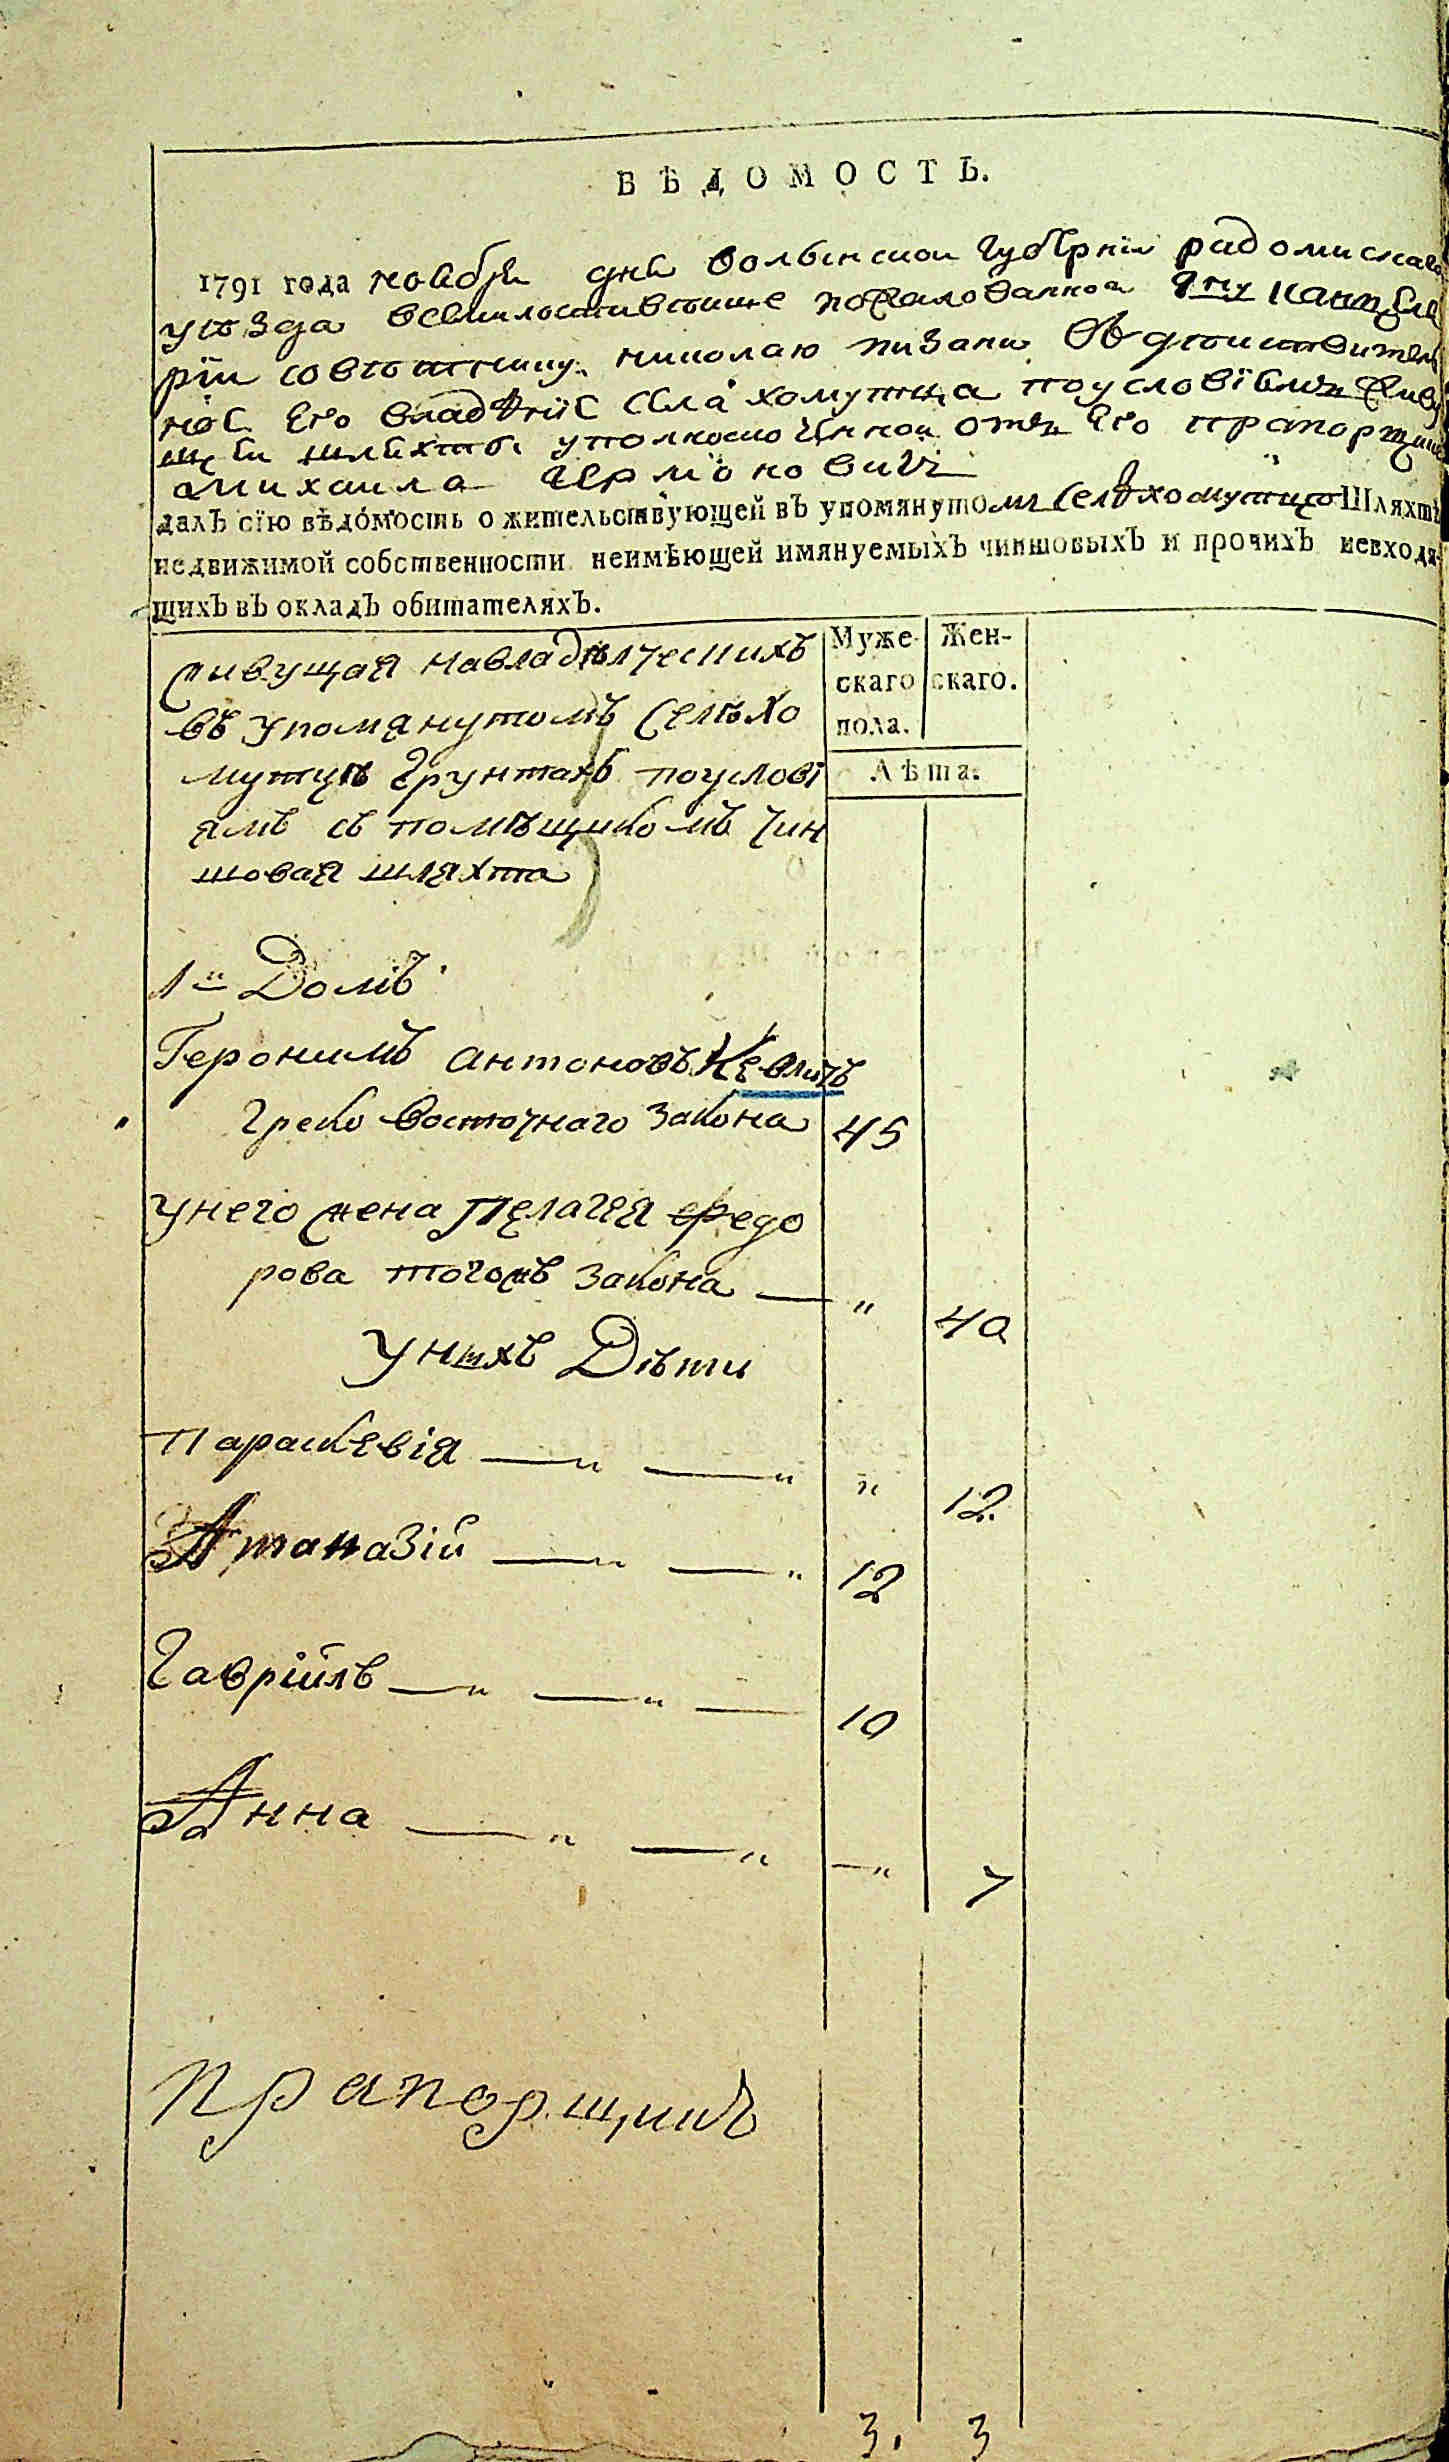 ВѢДОМОСТЬ.
1791 года ноября дня волынской губерніи радомислскаго
уѣзда всемилостивѣйше пожалованноа ему канцеля
ріи совѣтнику николаю пизани въ дѣйствитель
ное его владѣніе села хомутца поусловіямъ живу
щей шляхты уполномоченной отъ его прапорщик
а михаила
далъ сїю вѣдомость о жительствующей въ упомянутомъ селѣ хомутцѣ Шляхтѣ
недвижимой собственности неимѣющей имянуемыхъ чиншовыхъ и прочихъ невходя-
щихъ въ окладъ обитателяхъ.
живущая навладѣлческихъ
въ упомянутомъ селѣ хо
мутцѣ грунтахъ поуслові
ямъ съ помѣщикомъ чин
шовая шляхта
Муже- Жен-
скаго скаго.
пола.
Лѣта.
1й Домъ
Геронимъ антоновъ Невличъ
греко восточнаго закона 45
унего жена Пелагея федо
рова тогожъ закона — " 40
Унихъ Дѣти
параскевія — " — " " 12.
Атаназій — " — " 12
Гавріилъ — " — " — 10
Анна — " — " — " 7
прапорщикъ
3. 3